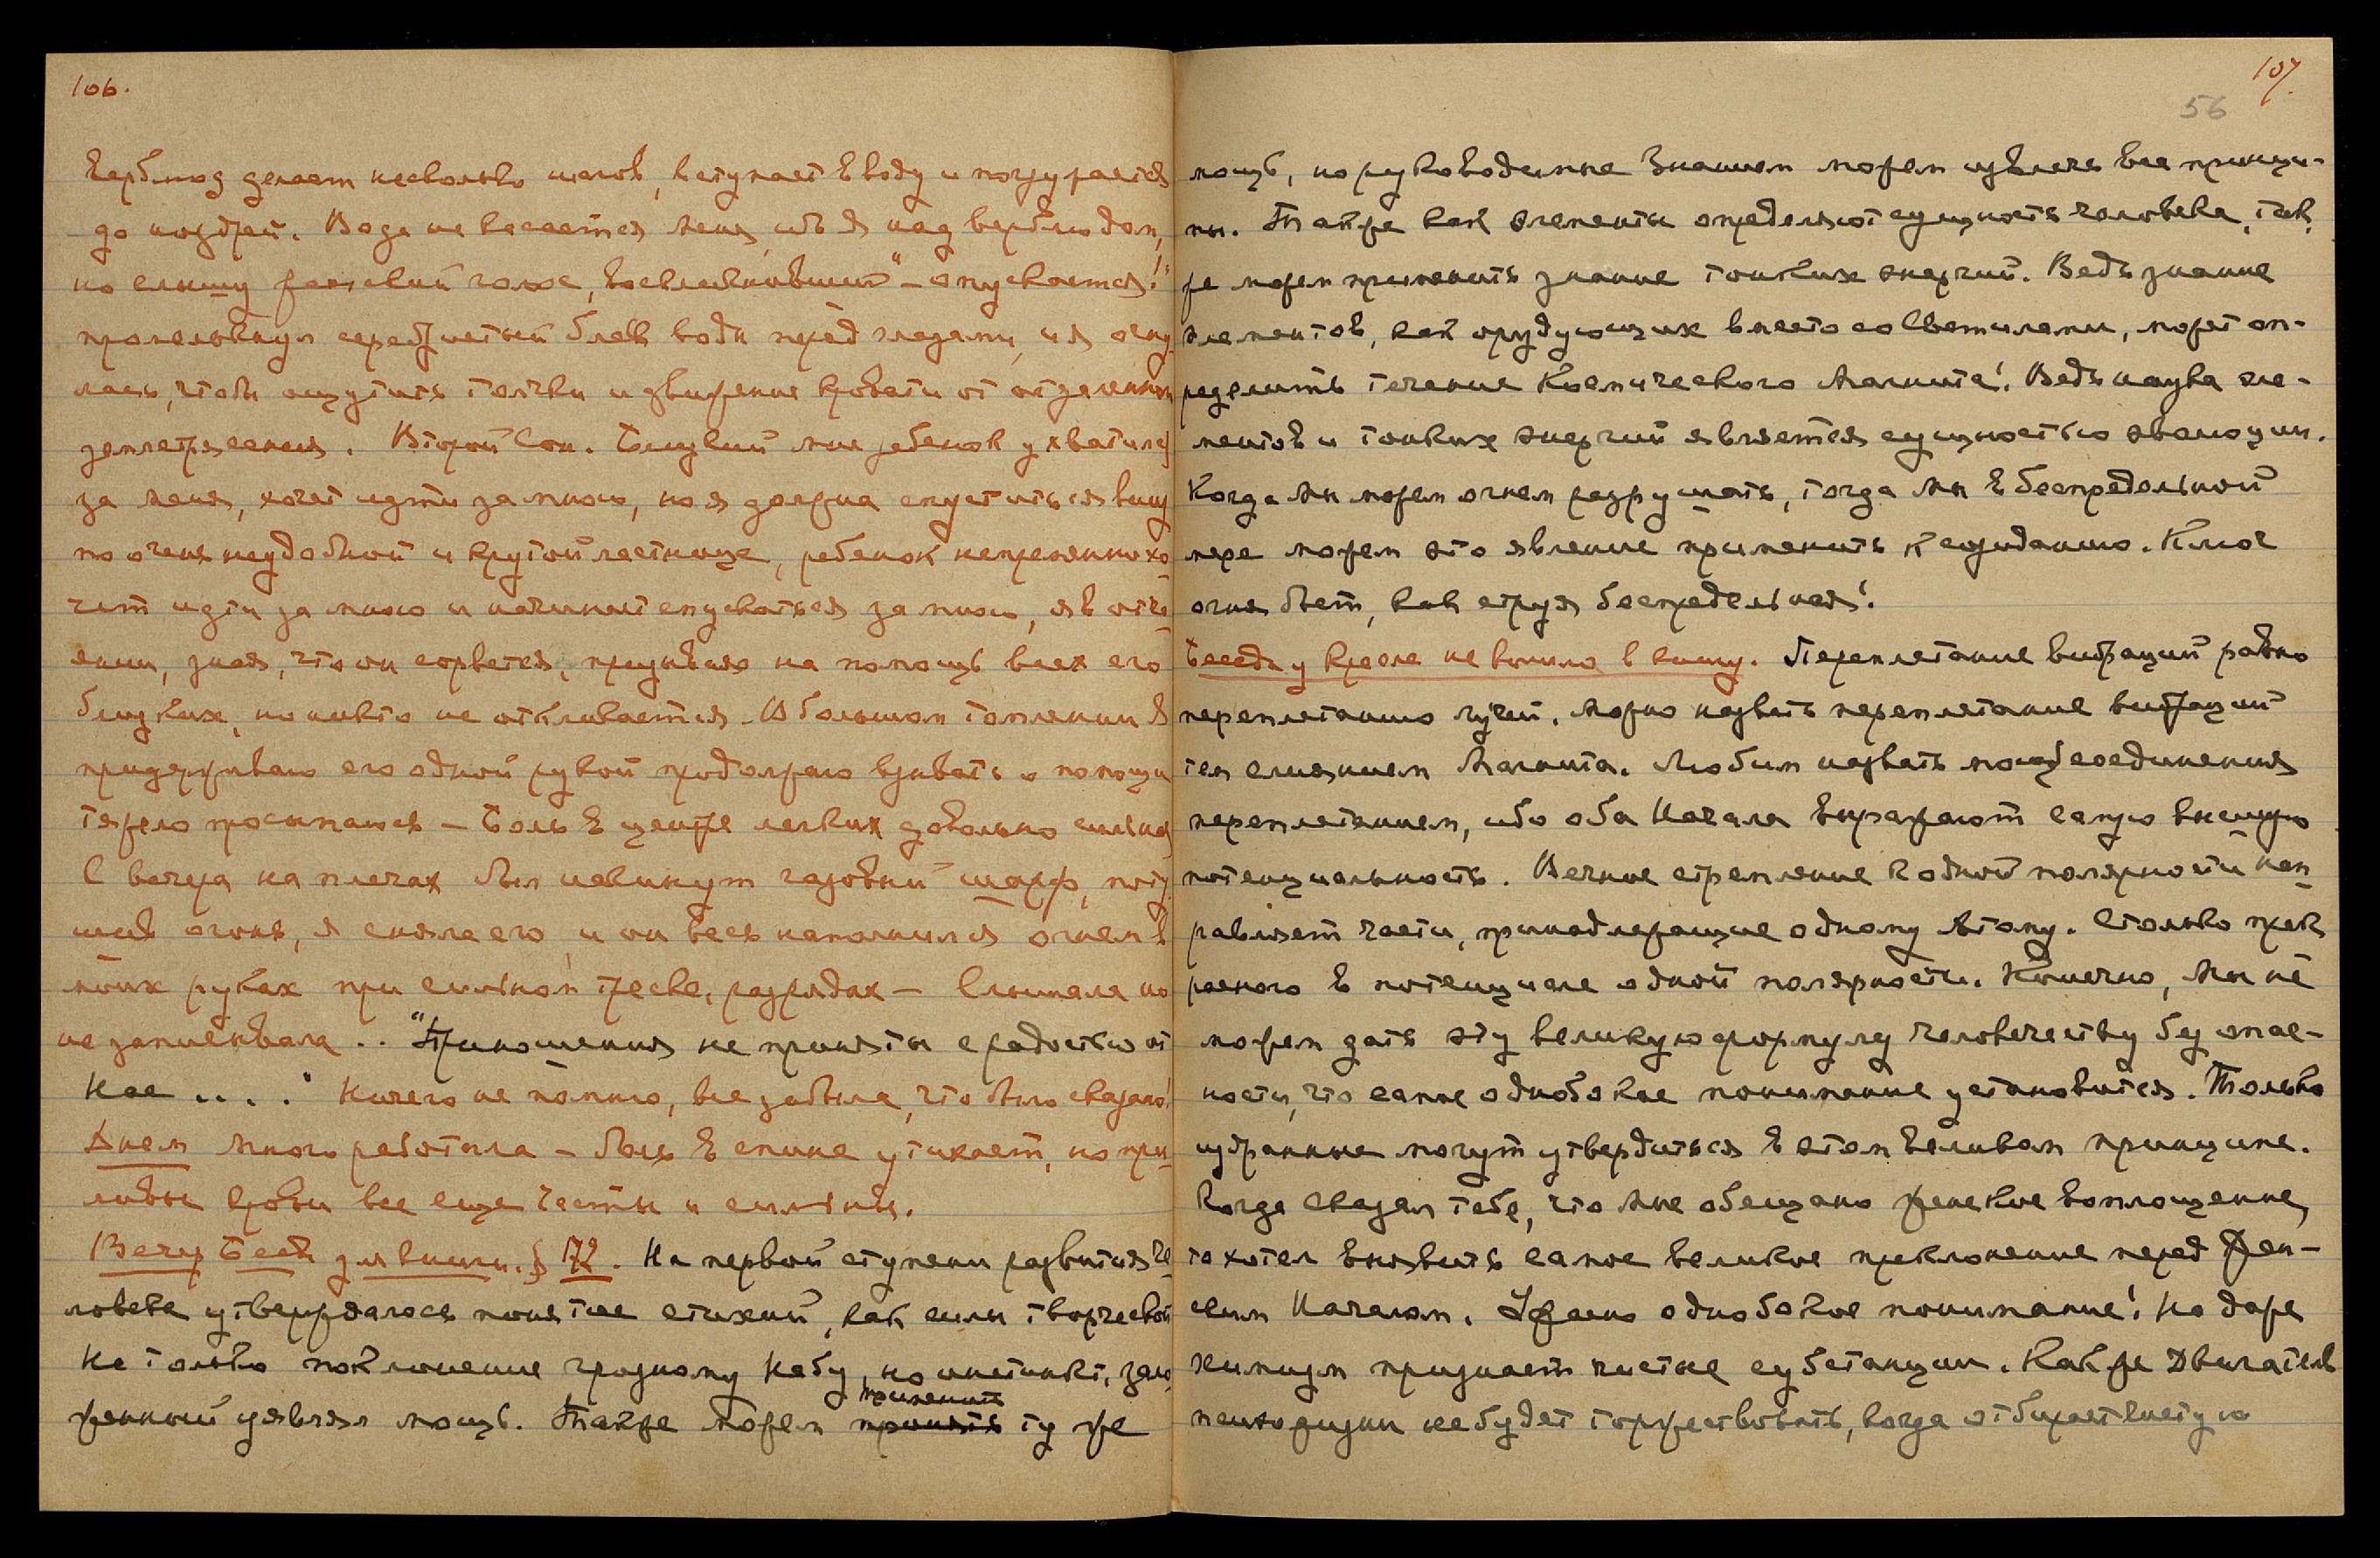 106.
верблюд делает несколько шагов, вступает в воду и погружается
до ноздрей. Вода не касается меня, ибо я над верблюдом,
но слышу женский голос, воскликнувший "– опускается!"
промелькнул серебристый блеск воды перед глазами, и я очну
лась, чтобы ощутить толчки и движение кровати от отдаленного
землетрясения. Второй Сон. Близкий мне ребенок ухватился
за меня, хочет идти за мною, но я должна спуститься вниз
по очень неудобной и крутой лестнице, ребенок непременно хо-
чет идти за мною и начинает спускаться за мною, я в отча-
янии, зная, что он сорвется, призываю на помощь всех его
близких, но никто не откликается. В большом томлении я
придерживаю его одной рукой продолжаю взывать о помощи
тяжело просыпаюсь – Боль в центре легких довольно сильная
С вечера на плечах был накинут газовый шарф, поту
шив огонь, я сняла его, и он весь наполнился огнем в
моих руках при сильном треске, разрядах – Слышала но
не записывала .. "Приношения не приняты с радостью от
Нас ...." Ничего не помню, все забыла, что было сказано!
Днем много работала – боль в спине утихает, но при-
ливы крови все еще часты и сильны.
Вечер Беседа для книги. § 172. На первой ступени развития че-
ловека утверждалось понятие стихий, как силы творческой
Не только поклонение грозному Небу, но инстинкт, зало
женный уявлял мощь. Также можем принять применить ту же
107.
56
мощь, но руководимые Знанием можем извлечь все принци-
пы. Также как элементы определяют сущность человека, так
же можем применить знание тонких энергий. Ведь знание
элементов, как орудующих вместе со Светилами, может оп-
ределить течение Космического Магнита! Ведь наука эле-
ментов и тонких энергий является сущностью эволюции.
Когда Мы можем огнем разрушать, тогда Мы в беспредельной
мере можем это явление применить к созиданию. Ключ
огня бьет, как струя беспредельная!
Беседа у Кресла не вошло в книгу. Переплетание вибраций равно
переплетанию лучей. Можно назвать переплетание вибраций
тем слиянием Магнита. Любим назвать мощь соединения
переплетанием, ибо оба Начала выражают самую высшую
потенциальность. Вечное стремление к одной полярности нап-
равляет части, принадлежащие одному Атому. Столько прек
расного в потенциале одной полярности. Конечно, Мы не
можем дать эту великую формулу человечеству без опас-
ности, что самое однобокое понимание установится. Только
избранные могут утвердиться в этом великом принципе.
Когда сказал тебе, что Мне обещано женское воплощение,
то хотел выявить самое великое преклонение перед Жен-
ским Началом. Ужасно однобокое понимание! Но даже
химизм признает чистые субстанции. Также Двигатель
психожизни не будет торжествовать, когда отбирает чистую